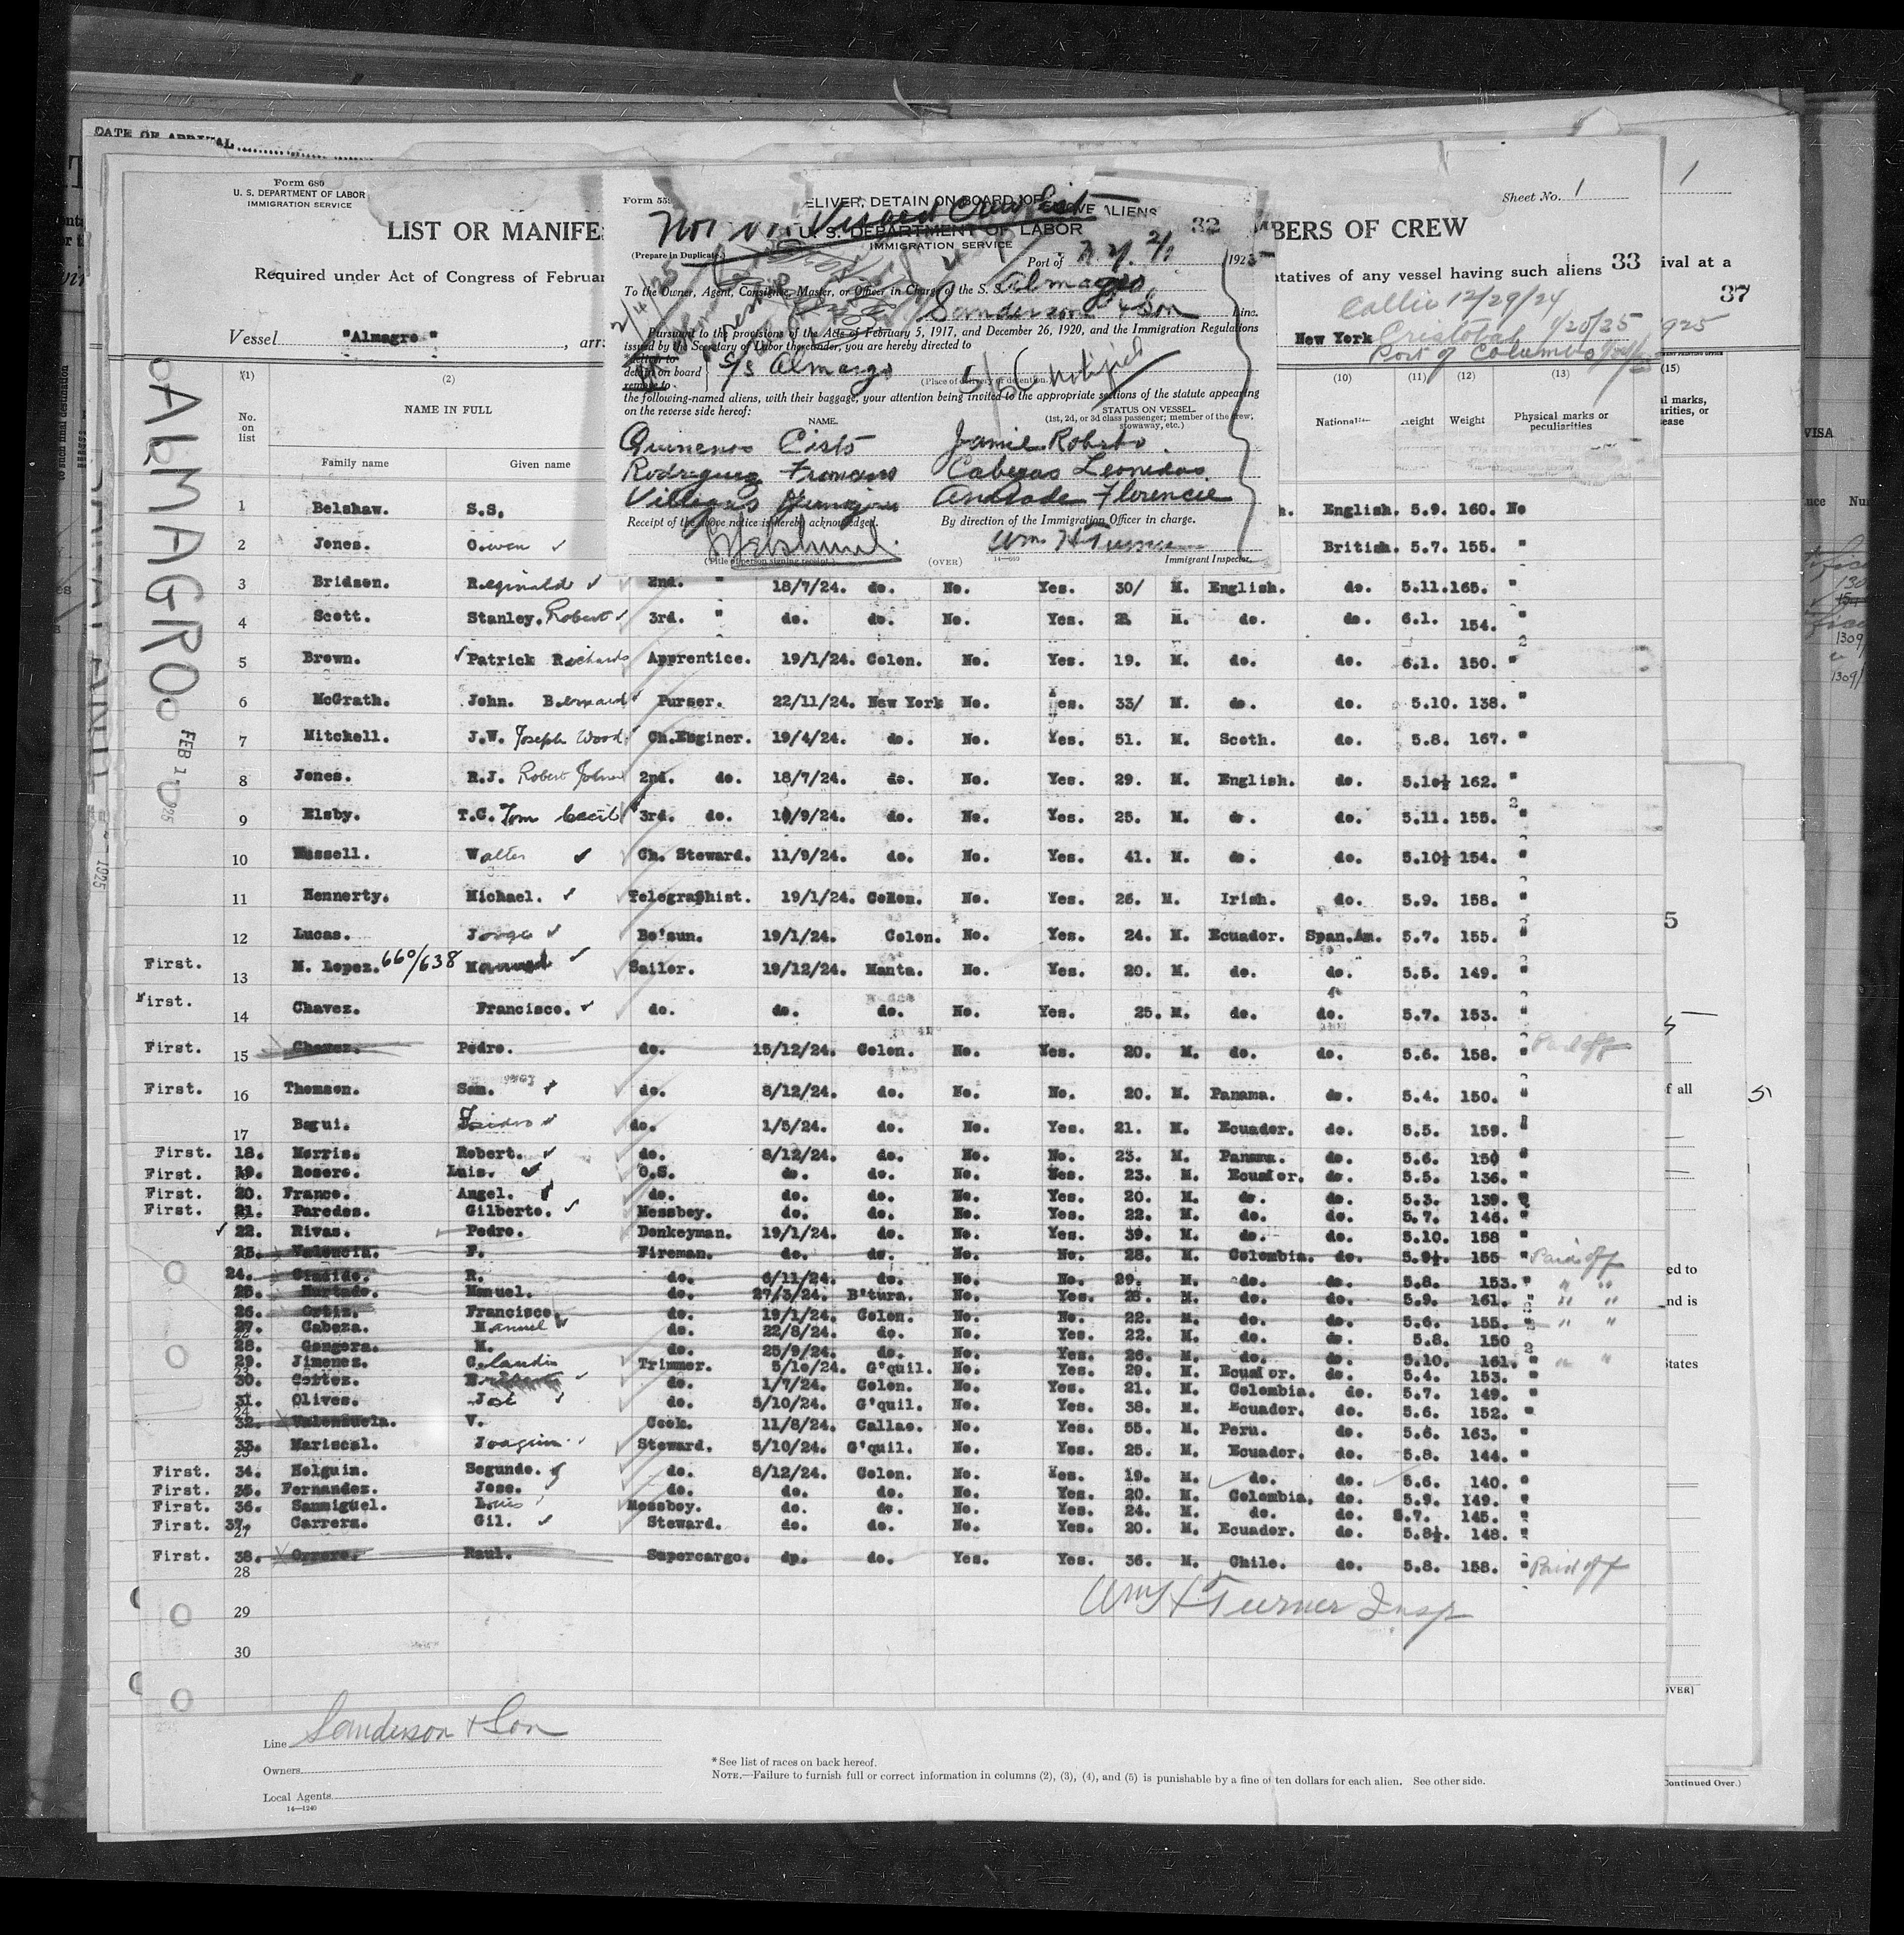 DATE OF ARRIVAL
Form 680
U. S. DEPARTMENT OF LABOR
IMMIGRATION SERVICE
Sheet No. 1
1
LIST OR MANIFE
MBERS OF CREW
Required under Act of Congress of Februar
ntatives of any vessel having such aliens 33
ival at a
37
Callio 12/29/24
Vessel "Almagro", arr
New York Cristobal 1/20/25
925
Port of Columbia
Form 55
ELIVER, DETAIN ON BOARD, OR
OVE ALIENS
Not
Visaed Crew List
U. S. DEPARTMENT OF LABOR
32
IMMIGRATION SERVICE
(Prepare in Duplicate.)
Port of N. Y. 2/1 1925
To the Owner, Agent, Consignee, Master, or Officer in Charge of the S. S. Almagro
Sanderson & Son Line.
Pursuant to the provisions of the Acts of February 5, 1917, and December 26, 1920, and the Immigration Regulations
issued by the Secretary of Labor thereunder, you are hereby directed to
detain on board S/S Almargo
remove to
(Place of delivery or detention.)
the following-named aliens, with their baggage, your attention being invited to the appropriate sections of the statute appearing
on the reverse side hereof:
NAME.
STATUS ON VESSEL.
(1st, 2d, or 3d class passenger; member of the crew, stowaway, etc.)
Cisto Roberto
Rodriguez Cabezas Leonidas
Villegas Andrade Florencie
Receipt of the above notice is hereby acknowledged. By direction of the Immigration Officer in charge.
Wm H Turner
(Title of person signing receipt.) (OVER) 14—660 Immigrant Inspector.
ALMAGRO
FEB 1 1925
(1) (2) (10) (11) (12) (13) (15)
No. on list
NAME IN FULL
Family name Given name
Height Weight Physical marks or peculiarities
1 Belshaw. S.S. English. 5.9. 160. No
2 Jones. Owen British. 5.7. 155. "
3 Bridson. Reginald 2nd. " 18/7/24. do. No. Yes. 30/ M. English. do. 5.11. 165. "
4 Scott. Stanley. Robert 3rd. " do. do. No. Yes. M. do. do. 6.1. 154. "
5 Brown. Patrick Richard Apprentice. 19/1/24. Colon. No. Yes. 19. M. do. do. 6.1. 150. "
6 McGrath. John. Bernard Purser. 22/11/24. New York No. Yes. 33/ M. do. do. 5.10. 138. "
7 Mitchell. J.W. Joseph Wood Ch.Enginer. 19/4/24. do. No. Yes. 51. M. Scoth. do. 5.8. 167. "
8 Jones. R.J. Robert John 2nd. do. 18/7/24. do. No. Yes. 29. M. English. do. 5.10½ 162. "
9 Elsby. T.C. Tom Cecil 3rd. do. 10/9/24. do. No. Yes. 25. M. do. do. 5.11. 155. "
10 Russell. Walter Ch. Steward. 11/9/24. do. No. Yes. 41. M. do. do. 5.10½ 154. "
11 Hennerty. Michael. Telegraphist. 19/1/24. Colon. No. Yes. 26. M. Irish. do. 5.9. 158. "
12 Lucas. Jorge Bo'sun. 19/1/24. Colon. No. Yes. 24. M. Ecuador. Span.Am. 5.7. 155. "
First. 13 M. Lopez. 660/638 Sailor. 19/12/24. Manta. No. Yes. 20. M. do. do. 5.5. 149. "
First. 14 Chavez. Francisco. do. do. do. No. Yes. 25. M. do. do. 5.7. 153. "
First. 15 Chavez. Pedro. do. 15/12/24. Colon. No. Yes. 20. M. do. do. 5.6. 158. " Paid off
First. 16 Thomson. Sam. do. 8/12/24. do. No. No. 20. M. Panama. do. 5.4. 150. "
17 Bagui. Isidro do. 1/5/24. do. No. Yes. 21. M. Ecuador. do. 5.5. 159. "
First. 18. Morris. Robert. do. 8/12/24. do. No. No. 23. M. Panama. do. 5.6. 150 "
First. 19. Rosero. Luis. O.S. do. do. No. Yes. 23. M. Ecuador. do. 5.5. 136. "
First. 20. Franco. Angel. do. do. do. No. Yes. 20. M. do. do. 5.3. 139. "
First. 21. Paredes. Gilberto. Messboy. do. do. No. Yes. 22. M. do. do. 5.7. 146. "
22. Rivas. Pedro. Donkeyman. 19/1/24. do. No. Yes. 39. M. do. do. 5.10. 158 "
23. Valencia. F. Fireman. do. do. No. No. 28. M. Colombia. do. 5.9½. 155 " Paid off
24. R. do. 6/11/24. do. No. No. 29. M. do. do. 5.8. 153. " " "
25. Hurtado. Manuel. do. 27/3/24. B'tura. No. Yes. 28. M. do. do. 5.9. 161. " " "
26. Ortiz. Francisco. do. 19/1/24. Colon. No. No. 22. M. do. do. 5.6. 155. " " "
27. Cabeza. Manuel do. 22/8/24. do. No. Yes. 22. M. do. do. 5.8. 150
28. Gongora. M. do. 25/9/24. do. No. Yes. 26. M. do. do. 5.10. 161. " " "
29. Jimenez. Claudio Trimmer. 5/10/24. G'quil. No. Yes. 29. M. Ecuador. do. 5.4. 153. "
30. Cortez. do. 1/7/24. Colon. No. Yes. 21. M. Colombia. do. 5.7. 149. "
31. Olives. José do. 5/10/24. G'quil. No. Yes. 38. M. Ecuador. do. 5.6. 152. "
32. Valenzuela. V. Cook. 11/8/24. Callao. No. Yes. 55. M. Peru. do. 5.6. 163. "
33. Mariscal. Joaquin Steward. 5/10/24. G'quil. No. Yes. 25. M. Ecuador. do. 5.8. 144. "
First. 34. Holguin. Segundo. do. 8/12/24. Colon. No. Yes. 19. M. do. do. 5.6. 140. "
First. 35. Fernandez. Jose. do. do. do. No. Yes. 20. M. Colombia. do. 5.9. 149. "
First. 36. Sanmiguel. Louis Messboy. do. do. No. Yes. 24. M. do. do. 5.7. 145. "
First. 37. Carrera. Gil. Steward. do. do. No. Yes. 20. M. Ecuador. do. 5.8½. 148. "
First. 38. Orrero. Raul. Supercargo. dp. do. Yes. Yes. 36. M. Chile. do. 5.8. 158. " Paid off
28
Wm H Turner Insp
29
30
Line Sanderson & Son
Owners
Local Agents
14—1240
*See list of races on back hereof.
NOTE.—Failure to furnish full or correct information in columns (2), (3), (4), and (5) is punishable by a fine of ten dollars for each alien. See other side.
Continued Over.)